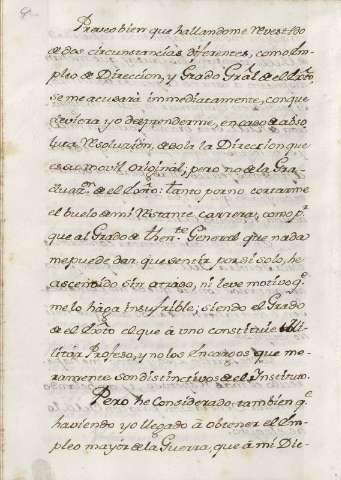 Preveo bien que hallandome Revestido
de dos circunstancias diferentes, como Em-
pleo de Direccion, y Grado Gral. de el Exto,
se me acusará immediatamente, con que
deviera yo desprenderme, en caso de abso-
luta Resolucion, de sola la Direccion que
es su movil original; pero no de la Gra-
duazn. de el Exto: tanto por no cortarme
el buelo de mi Restante carrera; como pr.
que al Grado de Thente. General que nada
me puede dar que sentir por si solo, he
ascendido sin atraso, ni leve motivo qe.
me lo hàga insufrible; siendo el Grado
de el Exto el que à uno constituie Mi-
litár Profeso, y no los Encargos que me-
ramente son distinctivos de el Instituto.
Pero he Considerado tambien qe.
haviendo yo llegado à obtener el Em-
pleo mayor de la Guerra, que à mi Die-